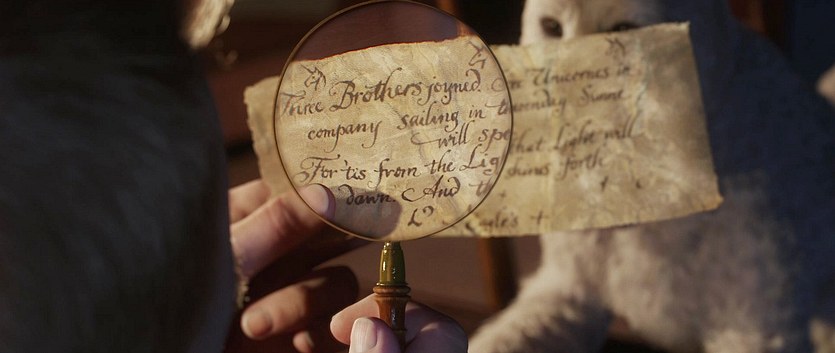 Three Brothers joyned. Unicornes in
company sailing in noonday Sunne
will that Light will
For 'tis from the shines forth
dawn. And
Eagle's +